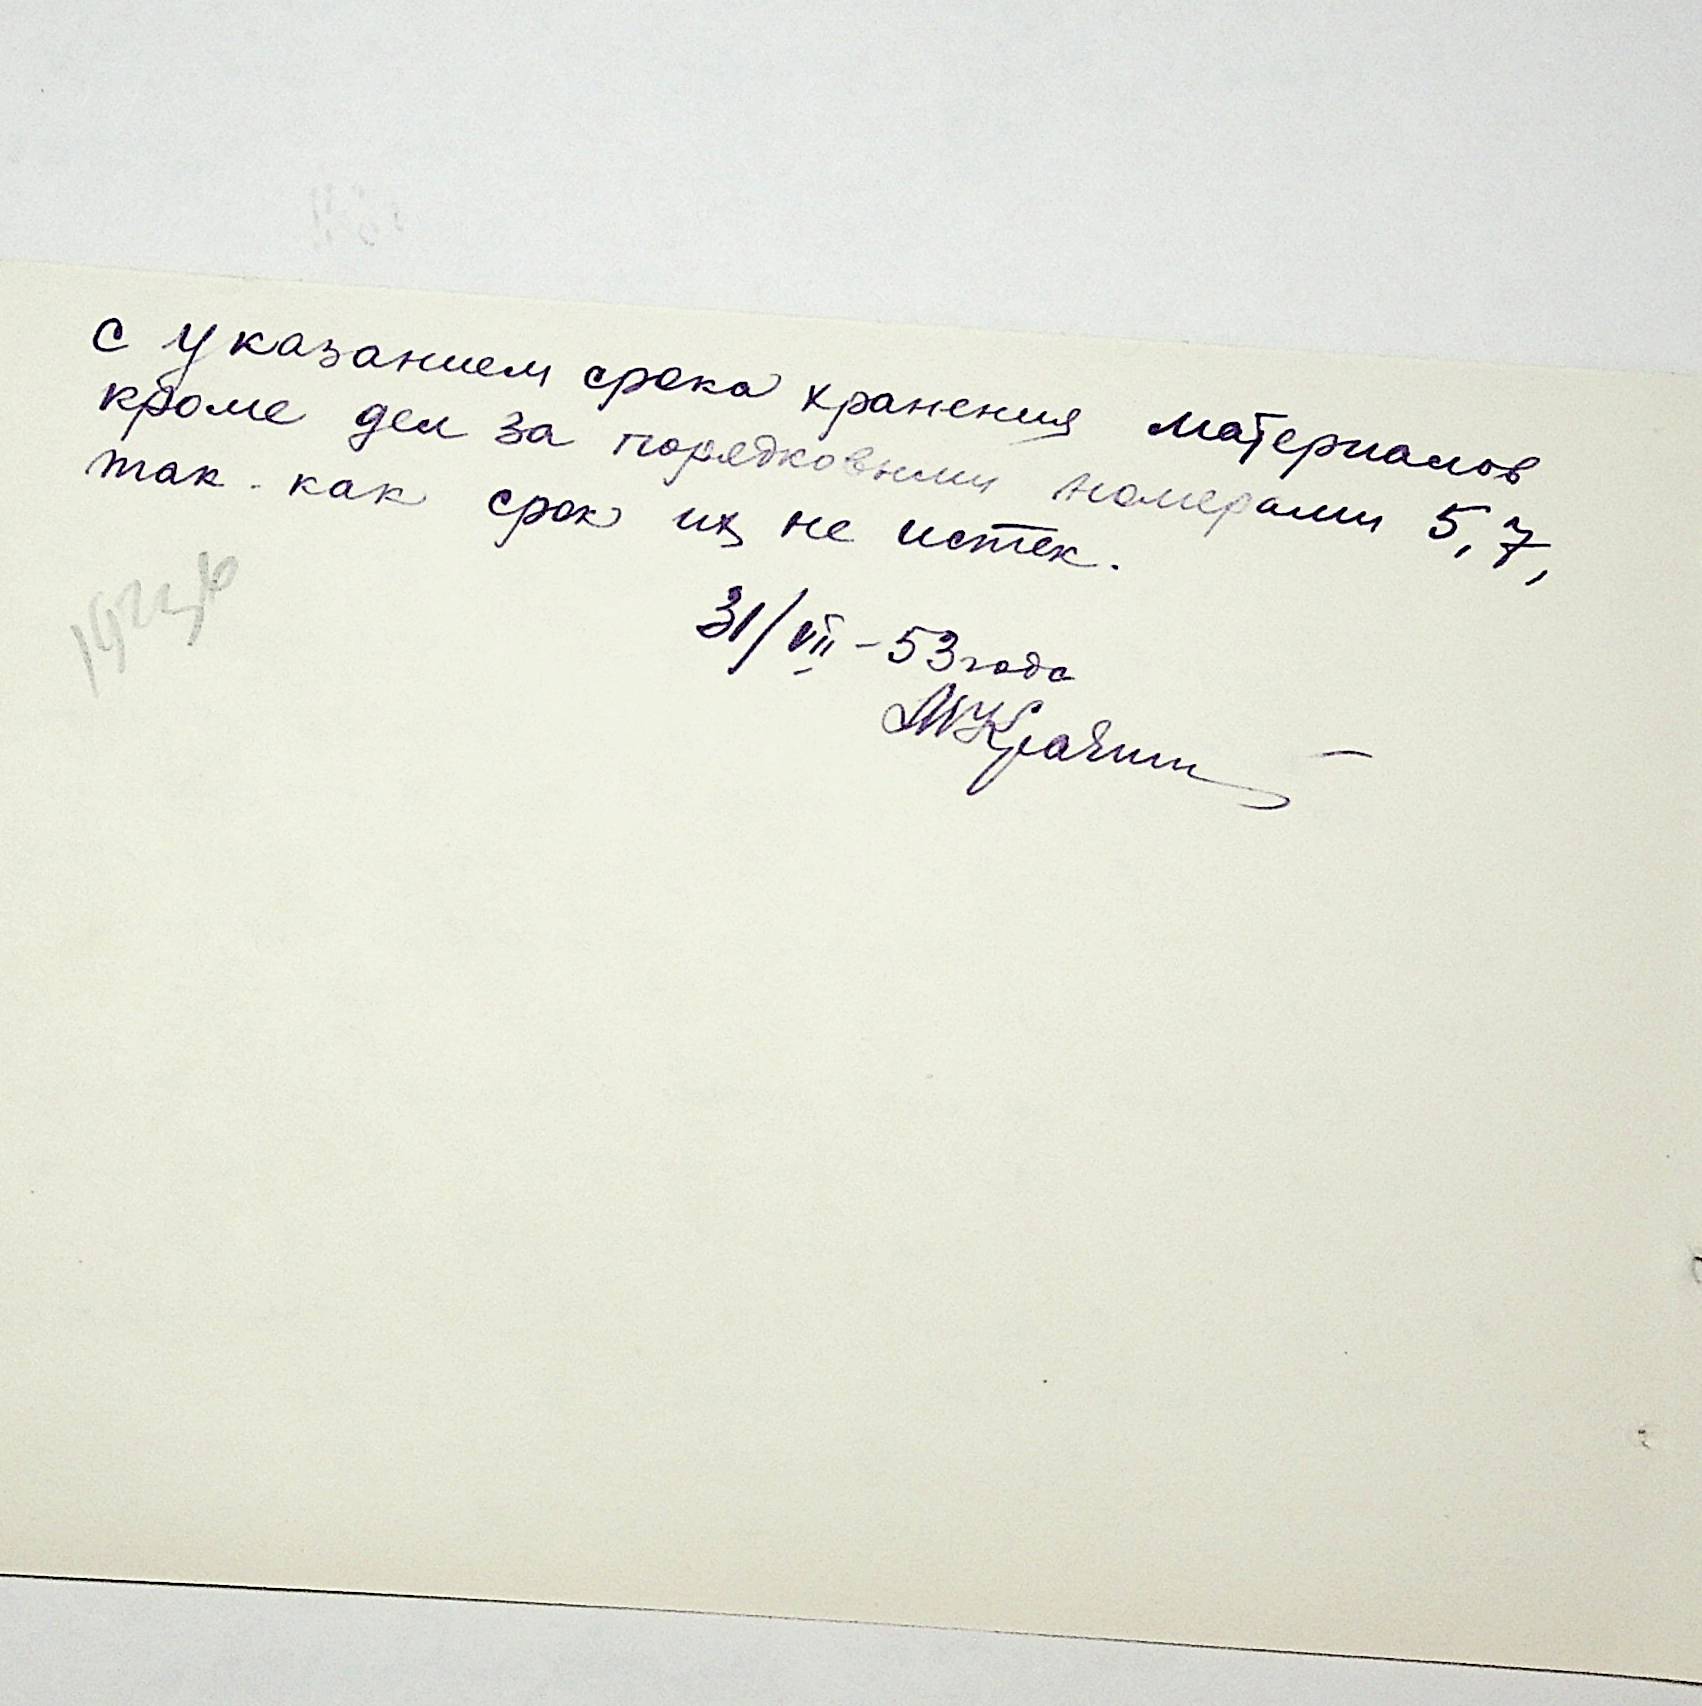 с указанием срока хранения материалов
кроме дел за порядковыми номерами 5, 7,
так как срок их не истек.
31/VII - 53 года